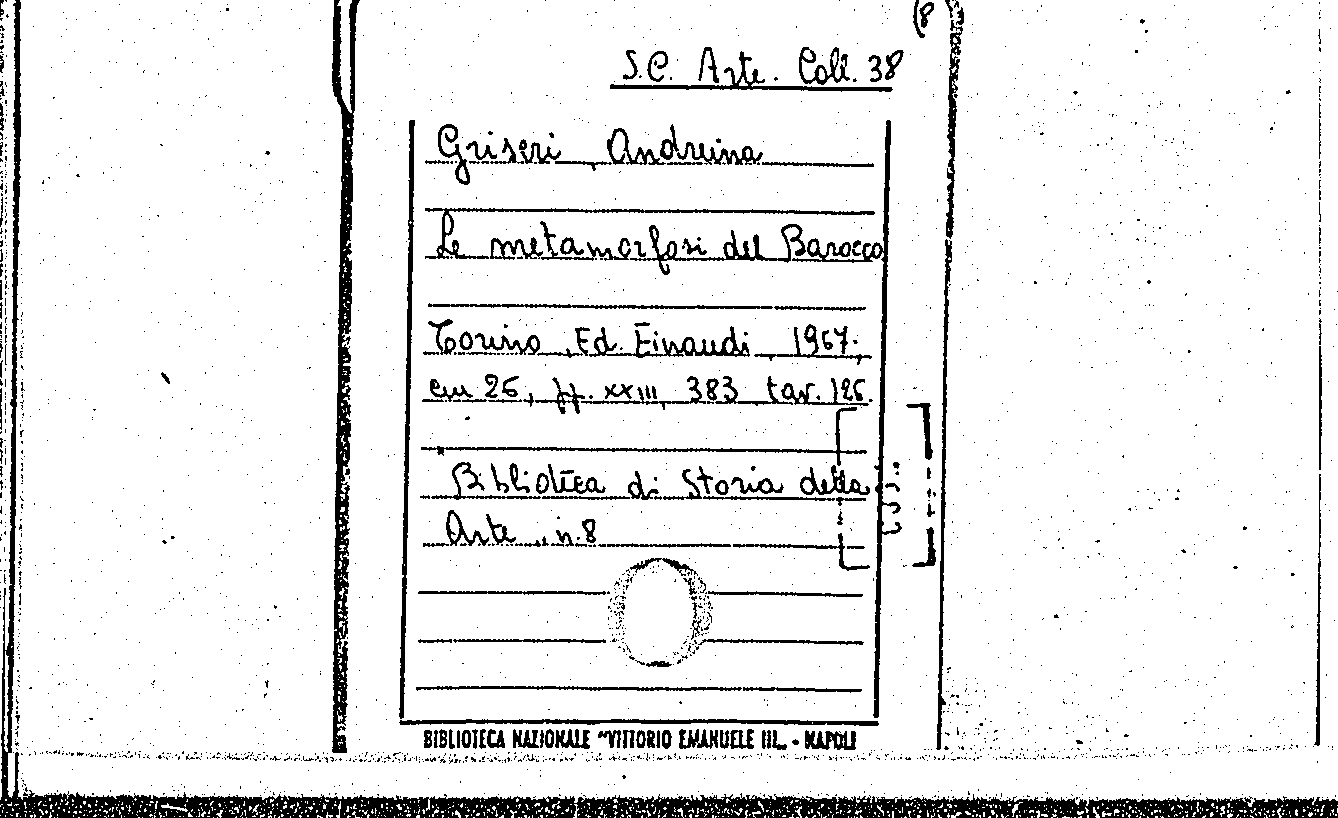 (8
S.C. Arte. Coll. 38
Griseri, Andreina
Le metamorfosi del Barocco
Torino, Ed. Einaudi, 1967;
cm 26, pp. XXIII, 383, tav. 126.
Biblioteca di Storia della
Arte, n. 8
BIBLIOTECA NAZIONALE "VITTORIO EMANUELE III„ - NAPOLI